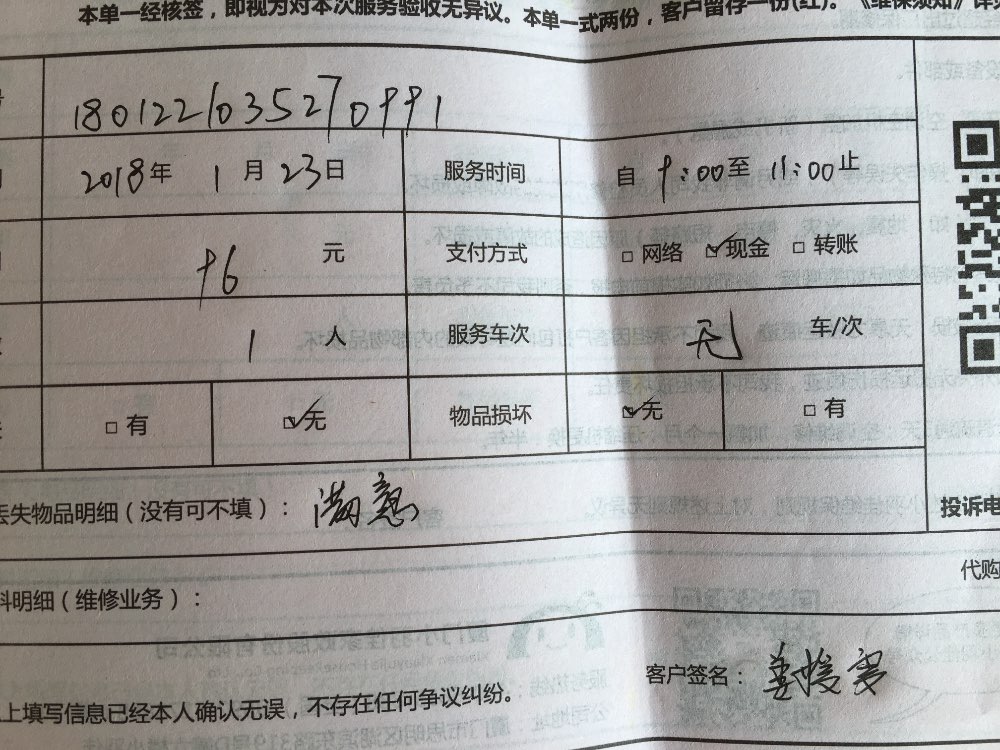 本单一经核签，即视为对本次服务验收无异议。本单一式两份，客户留存一份(红)。《维保须知》详
180122103527099​1
2018年 1月23日 服务时间 自 9:00至 11:00止
96 元 支付方式 □网络 ☑现金 □转账
1 人 服务车次 无 车/次
□有 ☑无 物品损坏 ☑无 □有
丢失物品明细（没有可不填）： 满意
投诉电
代购
料明细（维修业务）：
客户签名：
上填写信息已经本人确认无误，不存在任何争议纠纷。